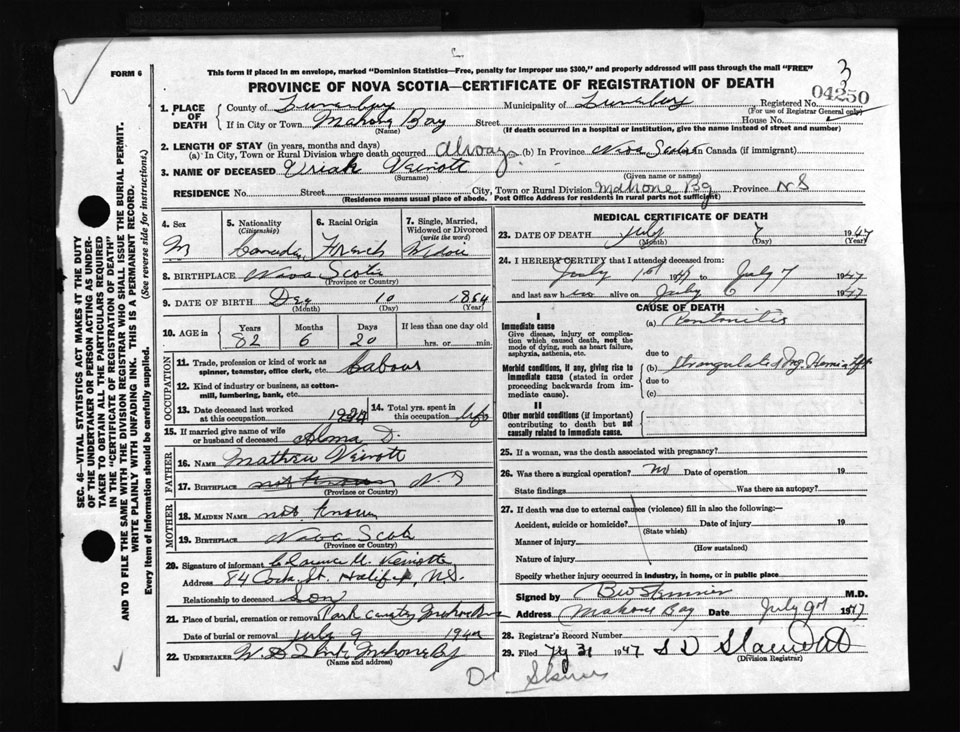 FORM 6
This form if placed in an envelope, marked "Dominion Statistics—Free, penalty for improper use $300," and properly addressed will pass through the mail "FREE"
PROVINCE OF NOVA SCOTIA—CERTIFICATE OF REGISTRATION OF DEATH
3
04250
1. PLACE OF DEATH
County of Lunenburg Municipality of Lunenburg Registered No.
(For use of Registrar General only)
If in City or Town Mahone Bay Street House No.
(Name) (If death occurred in a hospital or institution, give the name instead of street and number)
2. LENGTH OF STAY (in years, months and days)
(a) In City, Town or Rural Division where death occurred always (b) In Province Nova Scotia in Canada (if immigrant)
3. NAME OF DECEASED Uriah Veinott
(Surname) (Given name or names)
RESIDENCE No. Street City, Town or Rural Division Mahone By Province N S
(Residence means usual place of abode. Post Office Address for residents in rural parts not sufficient)
4. Sex
M
5. Nationality
(Citizenship)
Canadian
6. Racial Origin
French
7. Single, Married, Widowed or Divorced
(write the word)
8. BIRTHPLACE Nova Scotia
(Province or Country)
9. DATE OF BIRTH Dec 10 1864
(Month) (Day) (Year)
10. AGE in
Years Months Days If less than one day old
82 6 20 hrs. or min.
OCCUPATION
11. Trade, profession or kind of work as spinner, teamster, office clerk, etc. Labour
12. Kind of industry or business, as cotton-mill, lumbering, bank, etc.
13. Date deceased last worked at this occupation
14. Total yrs. spent in this occupation life
15. If married give name of wife or husband of deceased Alma D.
FATHER
16. NAME Mathew Veinott
17. BIRTHPLACE not known N. S
(Province or Country)
MOTHER
18. MAIDEN NAME not known
19. BIRTHPLACE Nova Scotia
(Province or Country)
20. Signature of informant Clarence M. Veinotte
Address 84 St. Halifax, N.S.
Relationship to deceased Son
21. Place of burial, cremation or removal Park Cemetery Mahone
Date of burial or removal July 9 194
22. UNDERTAKER Mahone By
(Name and address)
MEDICAL CERTIFICATE OF DEATH
23. DATE OF DEATH July 7 1947
(Month) (Day) (Year)
24. I HEREBY CERTIFY that I attended deceased from:
July 1st 47 to July 7 1947
and last saw him alive on July 6 1947
CAUSE OF DEATH
I
Immediate cause
Give disease, injury or complication which caused death, not the mode of dying, such as heart failure, asphyxia, asthenia, etc.
(a) Peritonitis
due to
Morbid conditions, if any, giving rise to immediate cause (stated in order proceeding backwards from immediate cause).
(b) Strangulated Ing. Hernia
due to
(c)
II
Other morbid conditions (if important) contributing to death but not causally related to immediate cause.
25. If a woman, was the death associated with pregnancy?
26. Was there a surgical operation? no Date of operation 19
State findings Was there an autopsy?
27. If death was due to external causes (violence) fill in also the following:—
Accident, suicide or homicide? Date of injury 19
(State which)
Manner of injury
(How sustained)
Nature of injury
Specify whether injury occurred in industry, in home, or in public place
Signed by M.D.
Address Mahone Bay Date July 9th 1947
28. Registrar's Record Number
29. Filed 31 1947 S D
(Division Registrar)
Dr
SEC. 46—VITAL STATISTICS ACT MAKES IT THE DUTY OF THE UNDERTAKER OR PERSON ACTING AS UNDERTAKER TO OBTAIN ALL THE PARTICULARS REQUIRED IN THE "CERTIFICATE OF REGISTRATION OF DEATH" AND TO FILE THE SAME WITH THE DIVISION REGISTRAR WHO SHALL ISSUE THE BURIAL PERMIT.
WRITE PLAINLY WITH UNFADING INK. THIS IS A PERMANENT RECORD.
Every item of information should be carefully supplied. (See reverse side for instructions.)